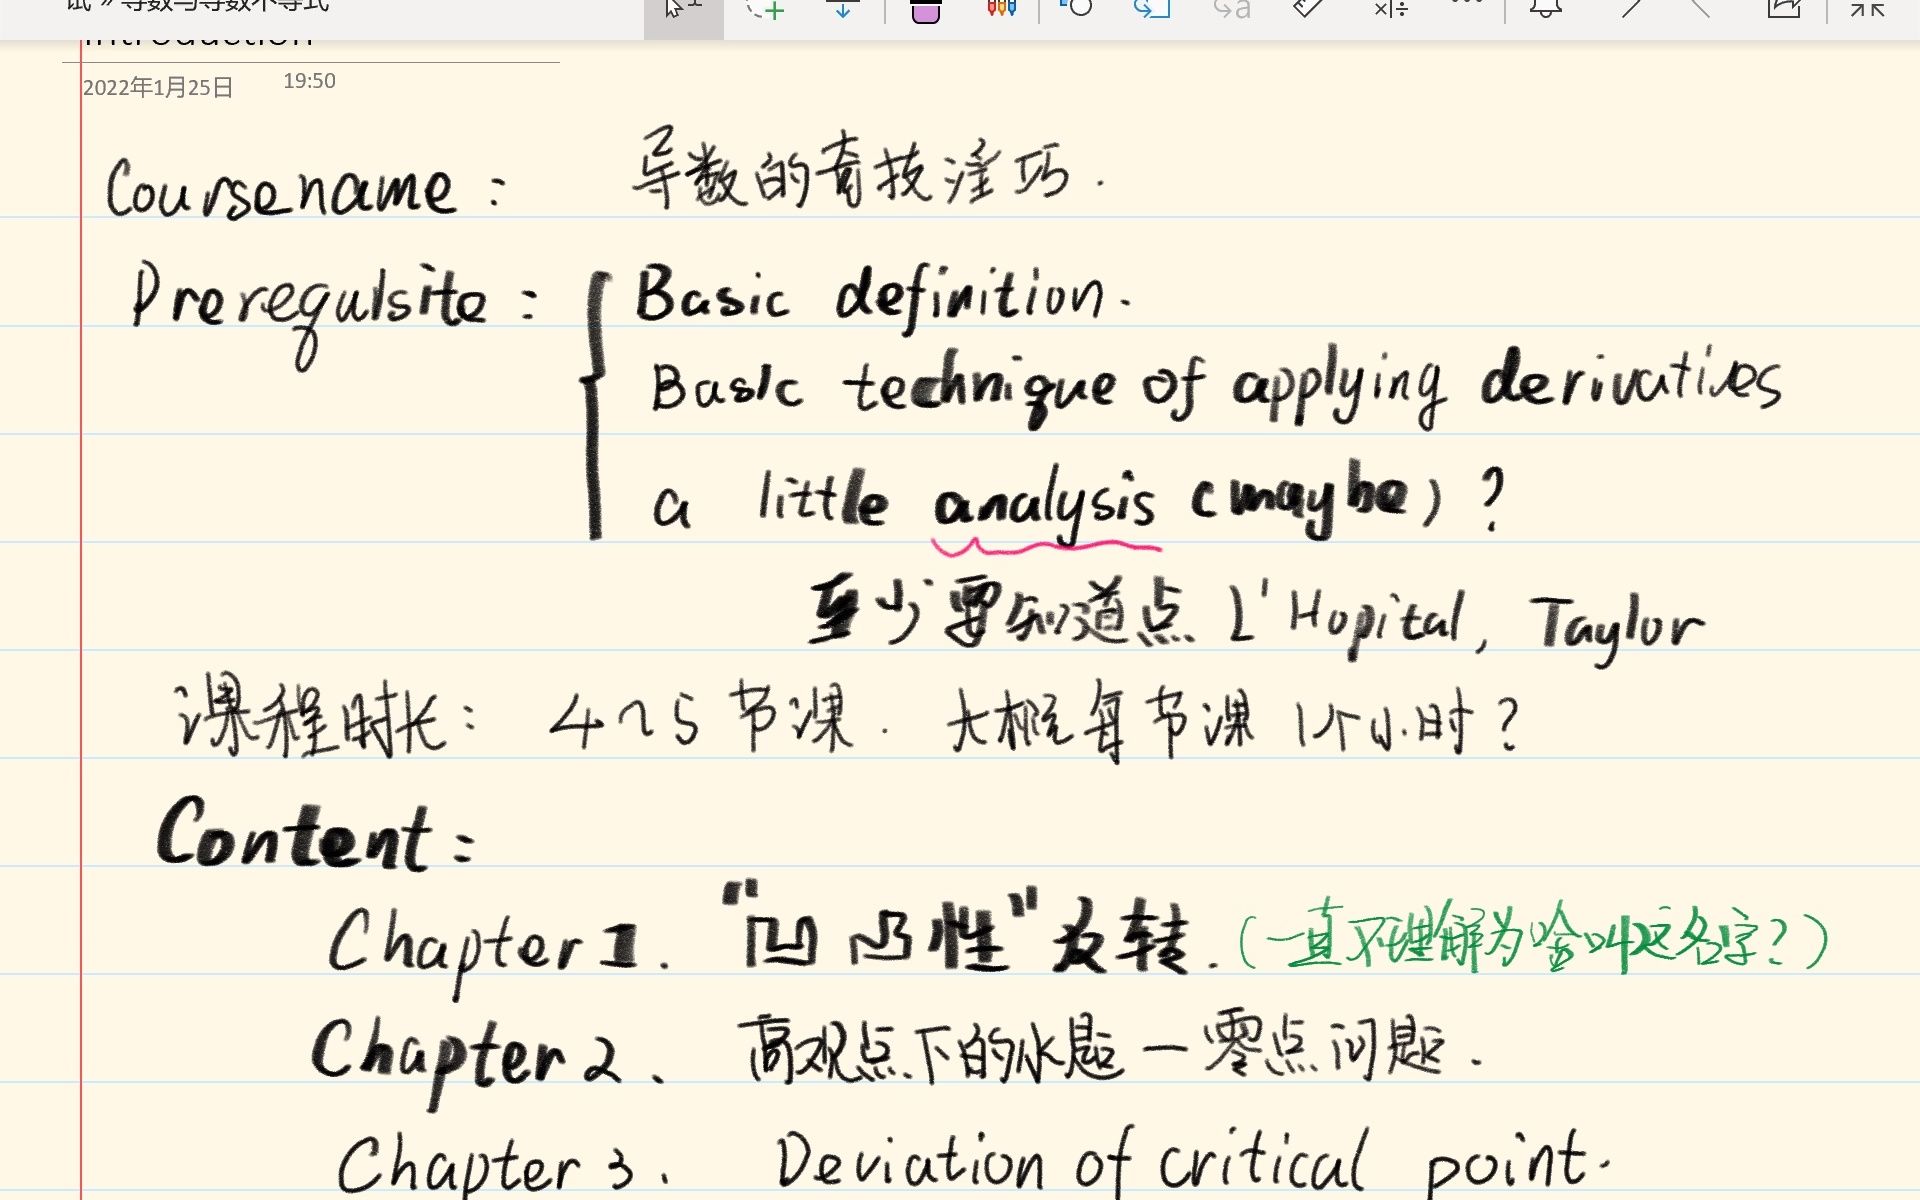 试 » 导数与导数不等式
Introduction
2022年1月25日 19:50
Course name : 导数的奇技淫巧.
Prerequisite : Basic definition.
Basic technique of applying derivatives
a little analysis (maybe) ?
至少要知道点 L'Hopital, Taylor
课程时长: 4~5节课. 大概每节课1个小时?
Content :
Chapter 1. "凹凸性"反转. (一直不理解为啥叫这名字?)
Chapter 2. 高观点下的水题—零点问题.
Chapter 3. Deviation of critical point.